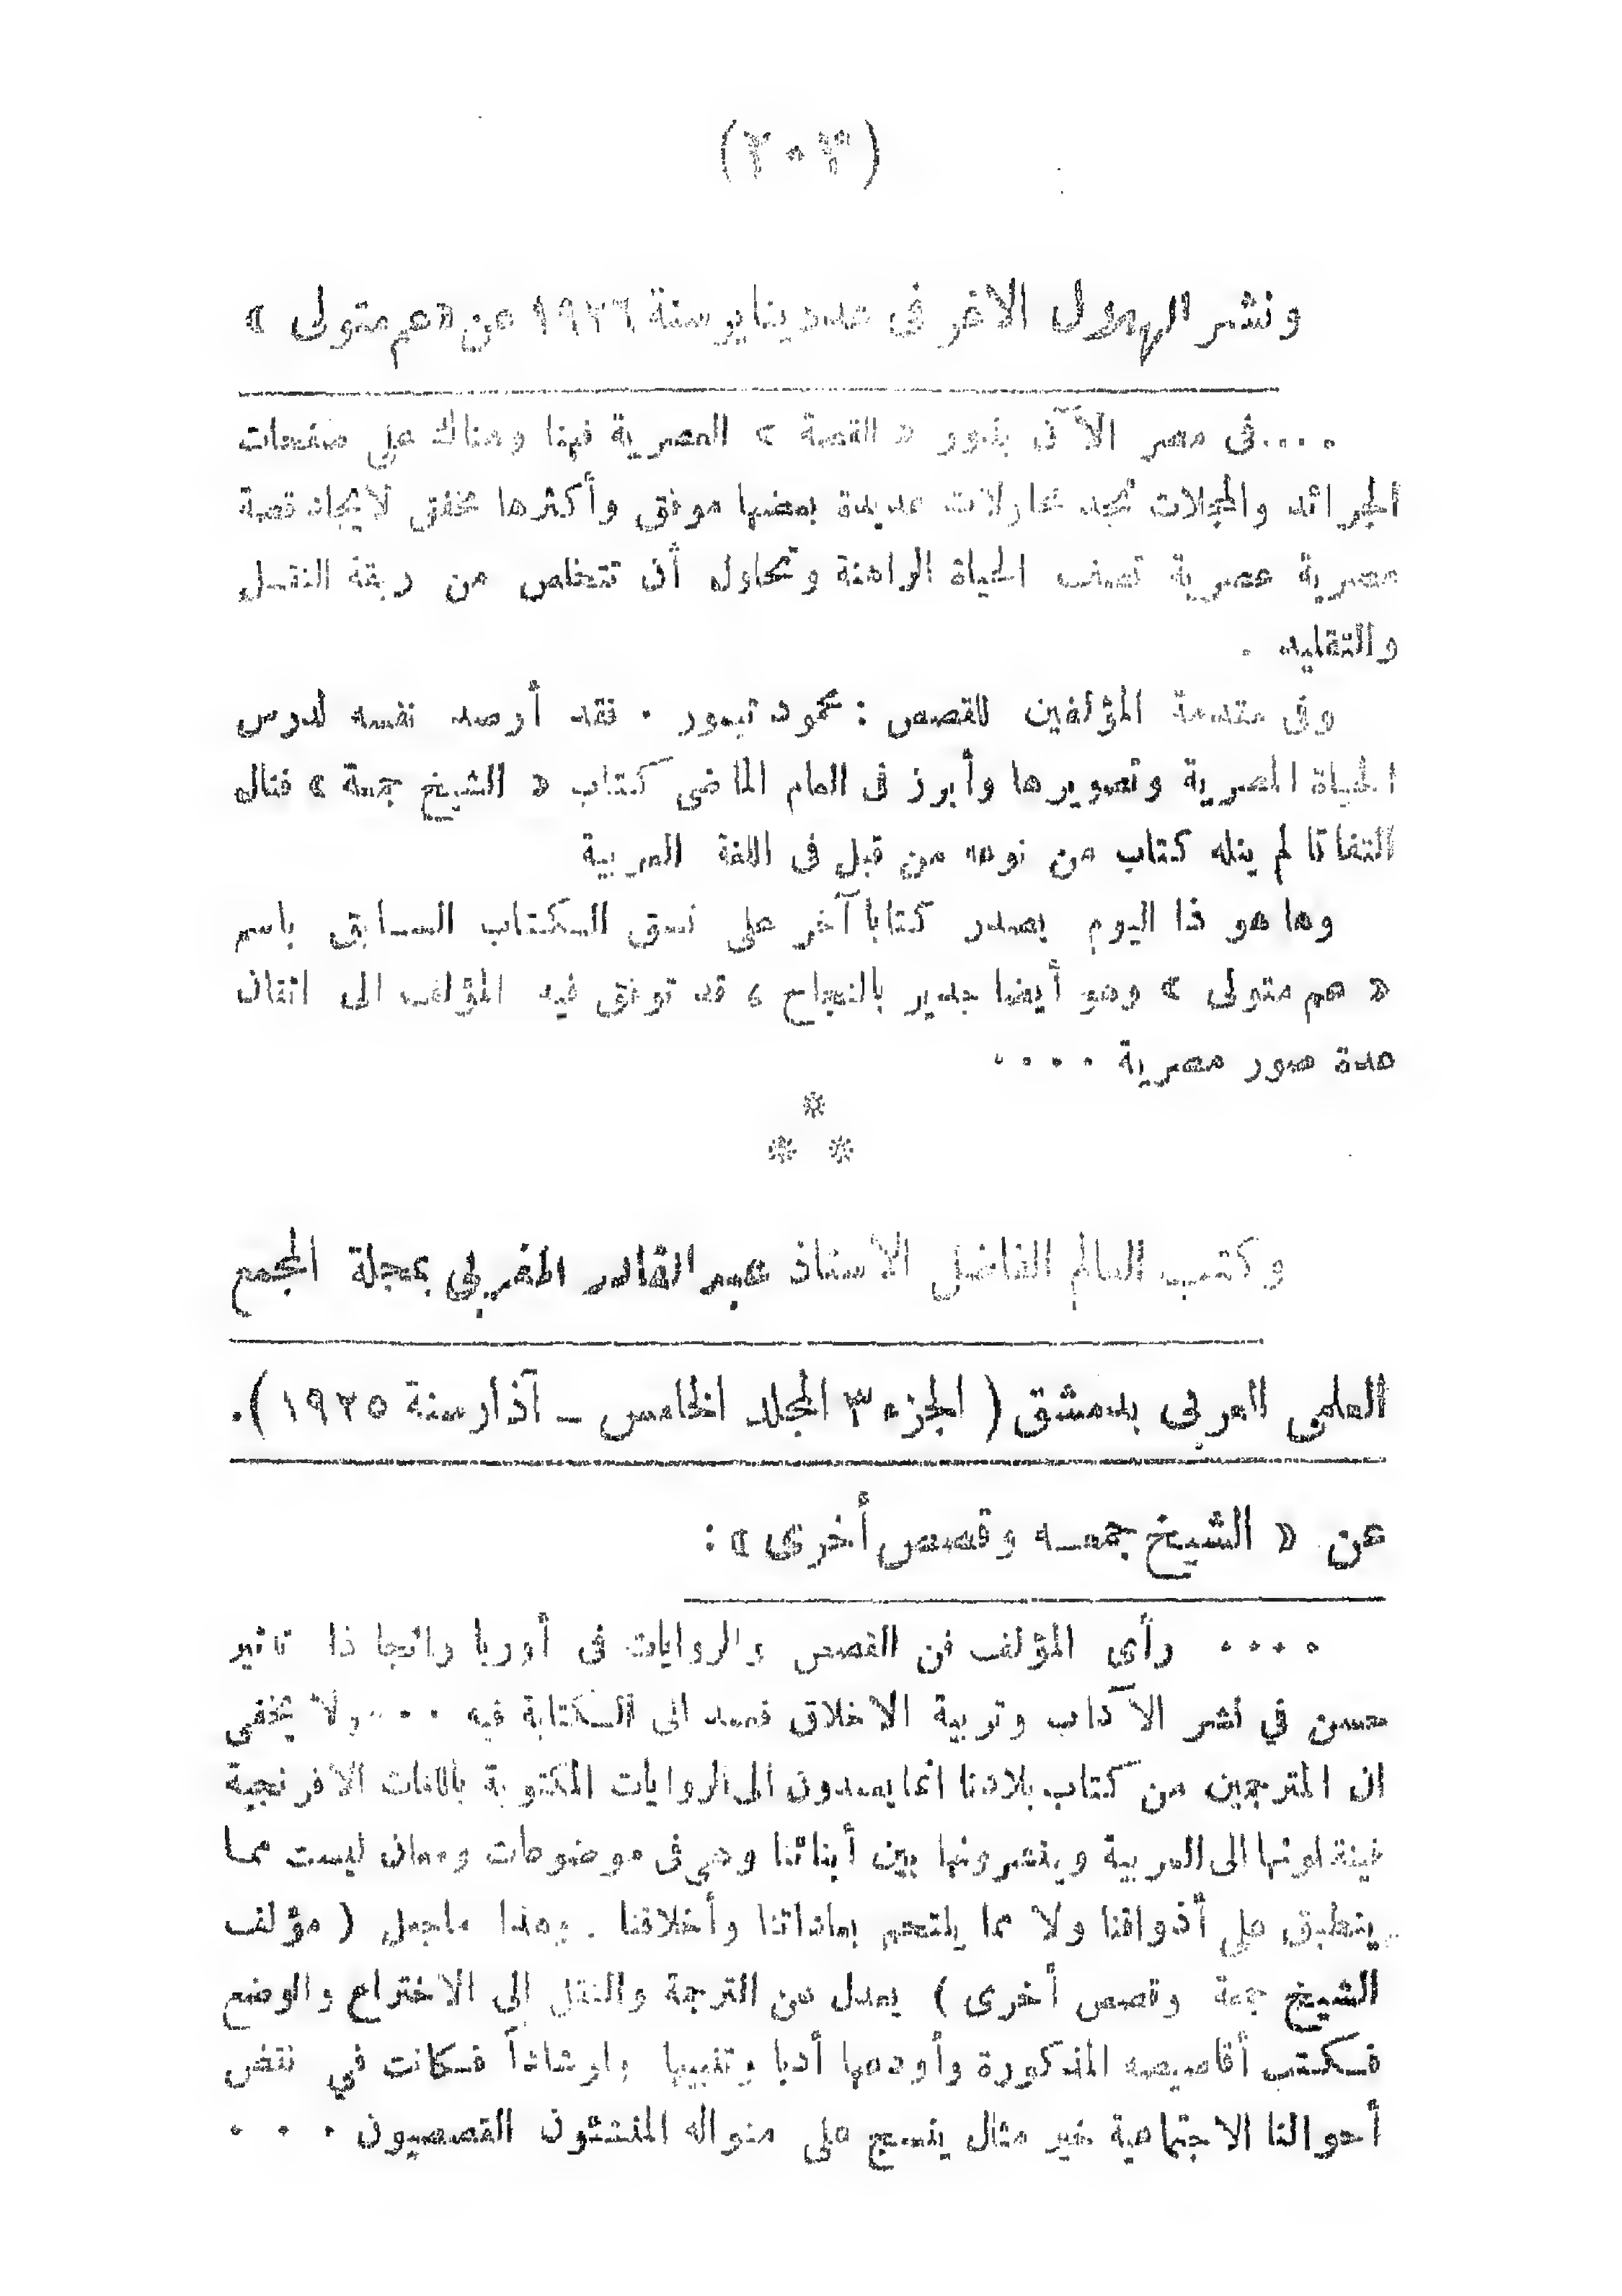 (٢٠٣)
ونشر الهلال الاغر فى عدد يناير سنة ١٩٢٦ عن «عم متولى »
....فى مصر الآن بذور « القصة » المصرية فهنا وهناك على صفحات
الجرائد والمجلات تجد محاولات عديدة بعضها موفق وأكثرها مخفق لايجاد قصة
مصرية عصرية تصف الحياة الراهنة وتحاول أن تتخلص من ربقة النقل
والتقليد .
وفى مقدمة المؤلفين للقصص : محمود تيمور . فقد أرصد نفسه لدرس
الحياة المصرية وتصويرها وأبرز فى العام الماضى كتاب « الشيخ جمعة » فنال
التفاتا لم ينله كتاب من نوعه من قبل فى اللغة العربية
وها هو ذا اليوم يصدر كتابا آخر على نسق الكتاب السابق باسم
« عم متولى » وهو أيضا جدير بالنجاح ، قد توفق فيه المؤلف الى اتقان
عدة صور مصرية ....
*
* *
وكتب العالم الفاضل الاستاذ عبد القادر المغربي بمجلة المجمع
العلمى العربى بدمشق ( الجزء ٣ المجلد الخامس ـ آذار سنة ١٩٢٥ ).
عن « الشيخ جمعه وقصص أخرى » :
.... رأى المؤلف فن القصص والروايات فى أوربا رائجا ذا تاثير
حسن في نشر الآداب وتربية الاخلاق فعمد الى الكتابة فيه ....ولا يخفى
ان المترجمين من كتاب بلادنا انما يعمدون الى الروايات المكتوبة باللغات الافرنجية
فينقلونها الى العربية وينشرونها بين أبنائنا وهي فى موضوعات ومعان ليست مما
ينطبق على أذواقنا ولا مما يلتحم بعاداتنا وأخلاقنا . وهذا ماجعل ( مؤلف
الشيخ جمعة وقصص أخرى ) يعدل عن الترجمة والنقل إلى الاختراع والوضع
فكتب أقاصيصه المذكورة وأودعها أدبا وتنبيها وارشاداً فكانت في نقض
أحوالنا الاجتماعية خير مثال ينسج على منواله المنشئون القصصيون . . .